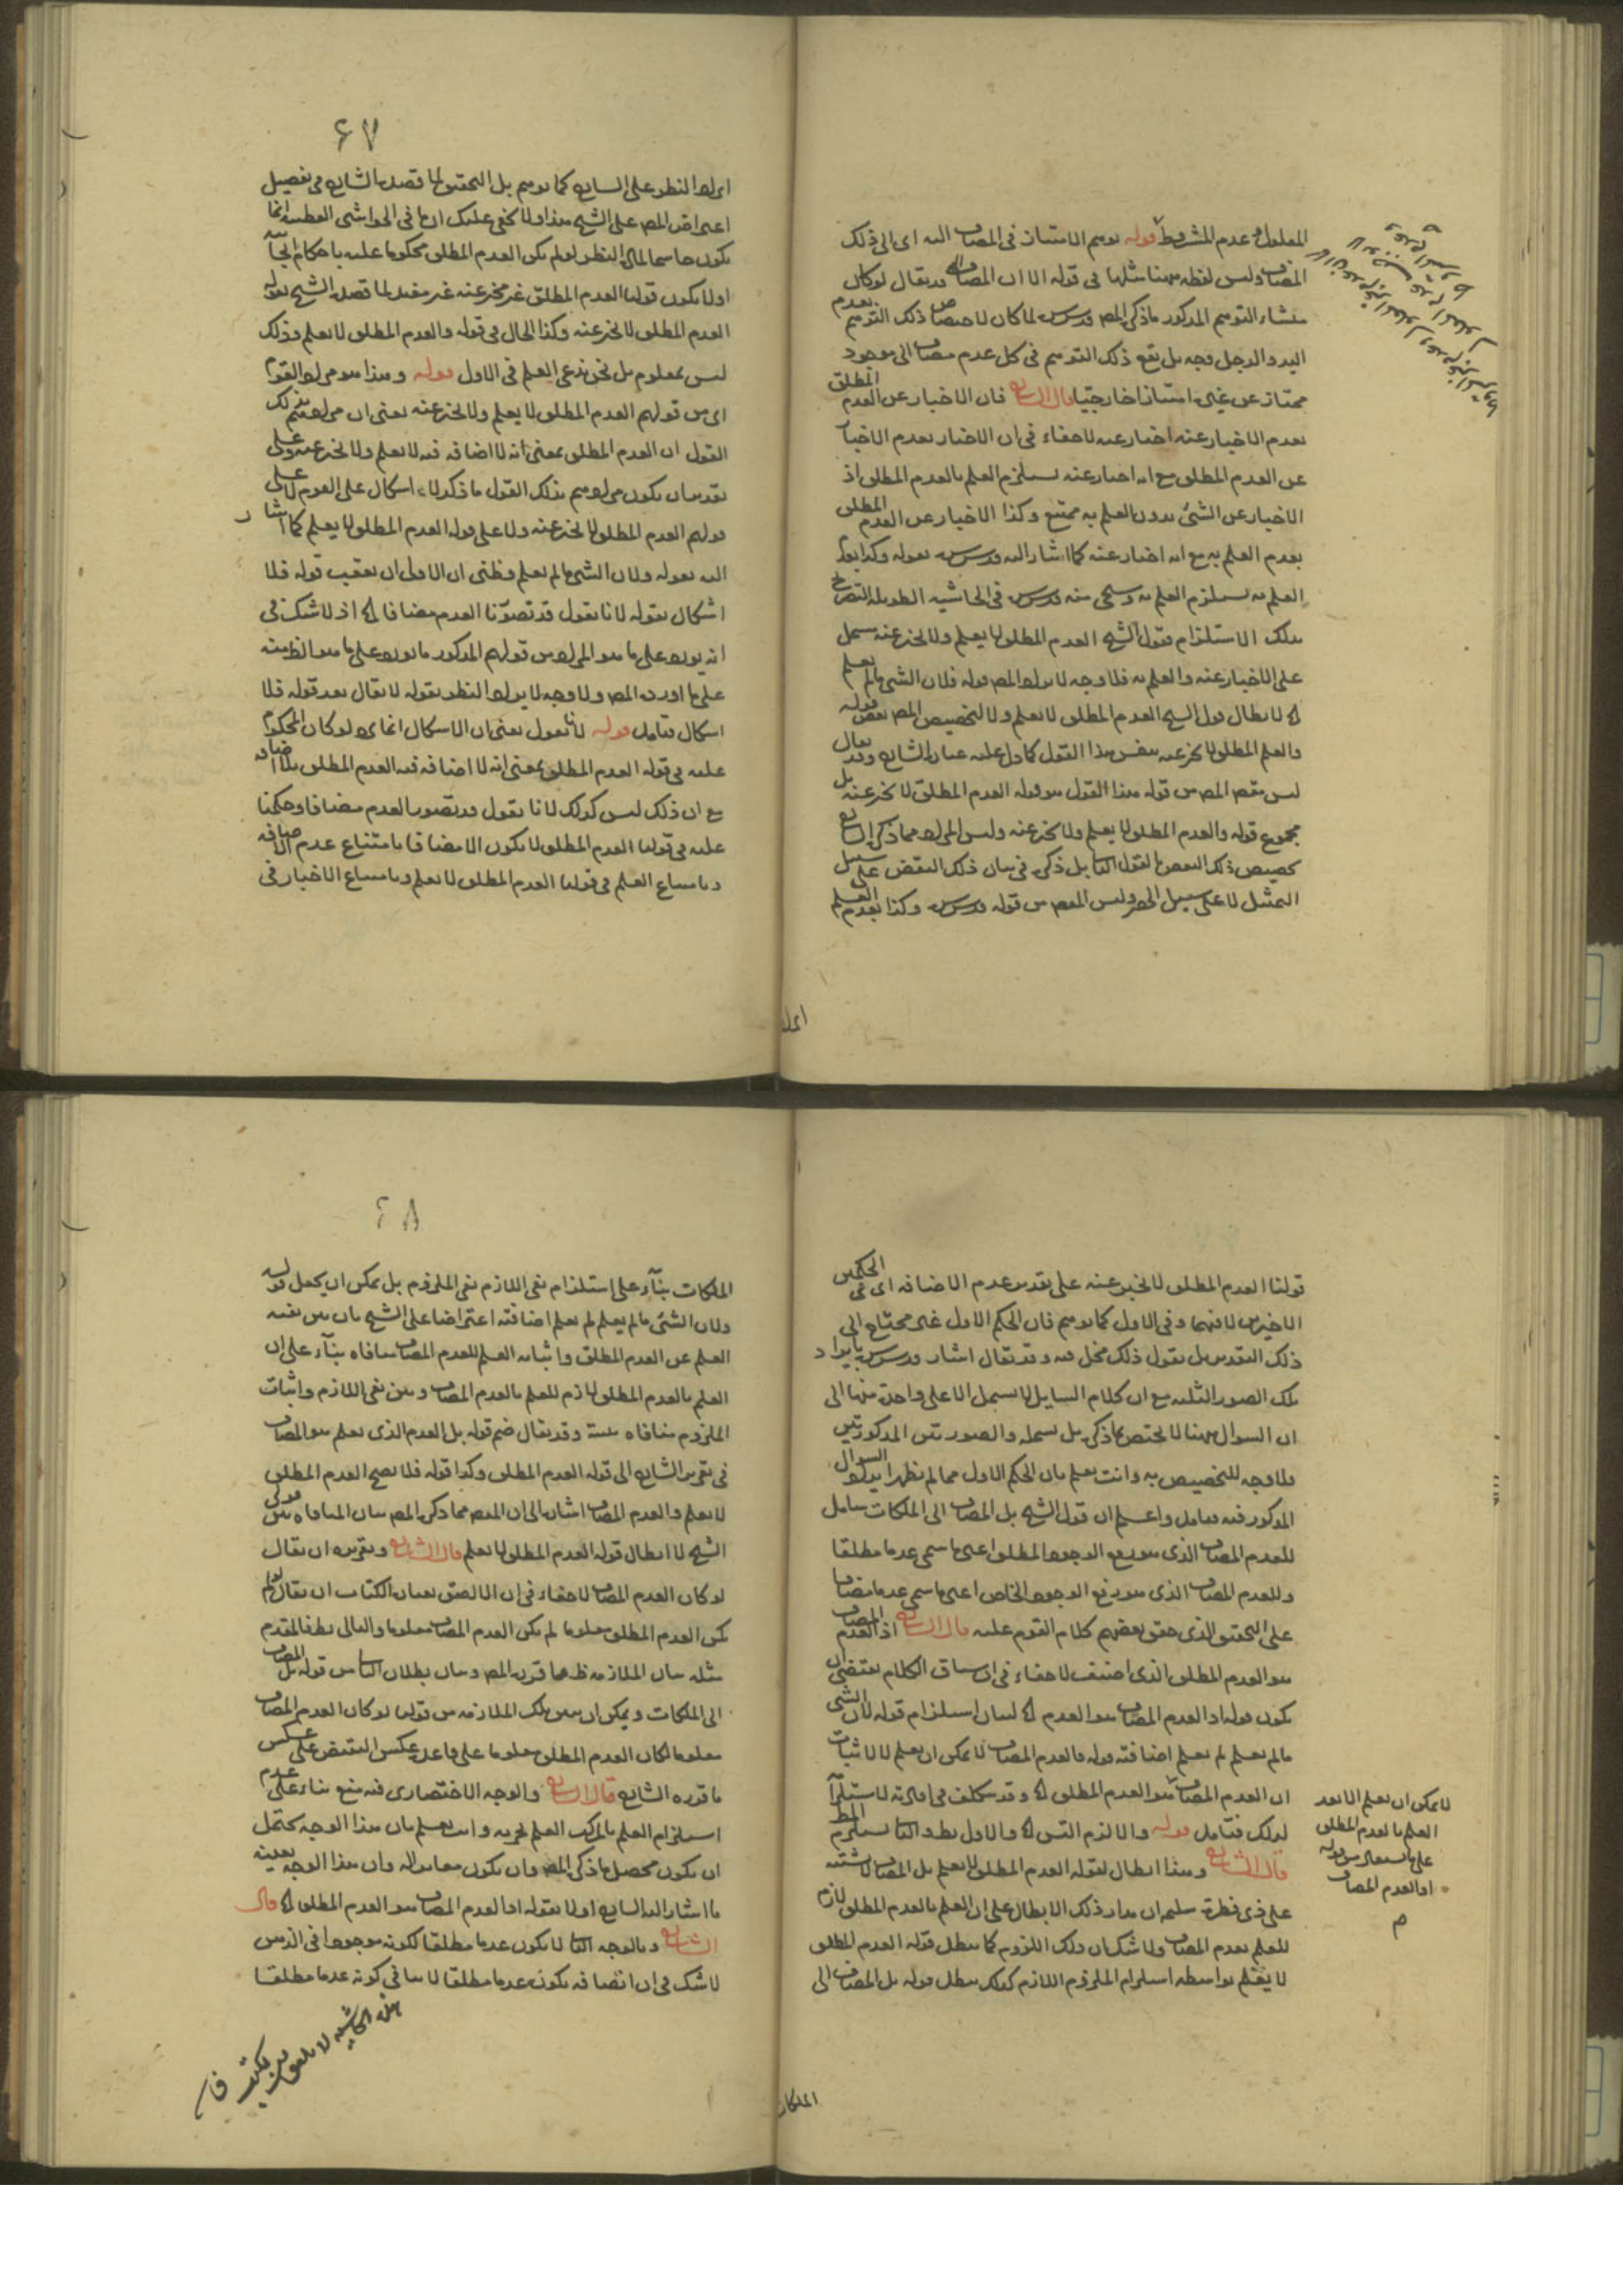 المعلول وعدم المشروط قوله يوهم الامتياز في المضاف اليه اى الى ذلك
المضاف وليس لفظه ههنا مثلها فى قوله الا ان المضاف وقد يقال لو كان
منشاء التوهم المذكور ما ذكره المص قدس سره لما كان لاختصاص ذلك التوهم بعدم
اليد والرجل وجه بل يقع ذلك التوهم فى كل عدم مضاف الى موجود
ممتاز عن غيره امتيازا خارجيا قال الشارح فان الاخبار عن العدم المطلق
بعدم الاخبار عنه اخبار عنه لا خفاء فى ان الاخبار بعدم الاخبار
عن العدم المطلق مع انه اخبار عنه يستلزم العلم بالعدم المطلق اذ
الاخبار عن الشئ بدون العلم به ممتنع وكذا الاخبار عن العدم المطلق
بعدم العلم به مع انه اخبار عنه كما اشار اليه قدس سره بقوله وكذا بعدم
العلم به يستلزم العلم به وسيجى منه قدس سره فى الحاشية الطويلة التصريح
بذلك الاستلزام فقول الشيخ العدم المطلق لا يعلم ولا يخبر عنه يشمل
على الاخبار عنه والعلم به فلا وجه لايراد المص قوله فلان الشئ ما لم يعلم
اه لابطال قول الشيخ العدم المطلق لا يعلم ولا لتخصيص المص بعض قوله
والعلم المطلق لا يخبر عنه بنقض هذا القول كما دل عليه عبارة الشارح وقد يقال
ليس مقصود المص من قوله هذا القول هو قوله العدم المطلق لا يخبر عنه بل
مجموع قوله والعدم المطلق لا يعلم ولا يخبر عنه وليس المراد مما ذكره الشارح
تخصيص ذلك النقض بالقول الثانى بل ذكره فى بيان ذلك النقض على سبيل
التمثيل لا على سبيل الحصر وليس المقصود من قوله قدس سره وكذا بعدم العلم
ايراد
٤٧
ايراد النظر على الشارح كما توهم بل التحقيق لما قصده الشارح فى تفصيل
اعتراض المص على الشيخ هذا ولا يخفى عليك ان ما فى الحواشى القطبية انما
يكون حاسما لمادة النظر لو لم يكن العدم المطلق محكوما عليه باحكام ايجابية
او لا يكون قولنا العدم المطلق غير مخبر عنه غير مفيد لما قصد الشيخ بقوله
العدم المطلق لا يخبر عنه وكذا الحال فى قوله والعدم المطلق لا يعلم وذلك
ليس بمعلوم بل نحن ندعى العلم فى الاول قوله وهذا هو مراد القوم
اى من قولهم العدم المطلق لا يعلم ولا يخبر عنه يعنى ان مرادهم بذلك
القول ان العدم المطلق بمعنى انه لا اضافة فيه لا يعلم ولا يخبر عنه وعلى
تقدير ان يكون مرادهم بذلك القول ما ذكر لا اشكال على القوم لا على
قولهم العدم المطلق لا يخبر عنه ولا على قوله العدم المطلق لا يعلم كما اشار
اليه بقوله ولان الشئ ما لم يعلم وظنى ان الاول ان يعقب قوله فلا
اشكال بقوله لانا نقول قد تصورنا العدم مضافا اه اذ لا شك فى
انه يورد على ما هو المراد من قولهم المذكور ما يورد على ما هو الظ منه
على ما اورده المص ولا وجه لايراد النظر بقوله لا يقال بعد قوله فلا
اشكال فتامل قوله لانا نقول يعنى ان الاشكال انما يرد لو كان المحكوم
عليه فى قوله العدم المطلق بمعنى انه لا اضافة فيه العدم المطلق بلا اضافة
مع ان ذلك ليس كذلك لانا نقول قد نتصور العدم مضافا وحكمنا
عليه فى قولنا العدم المطلق لا يكون الا مضافا بامتناع عدم الاضافة
وبامتناع العلم فى قولنا العدم المطلق لا يعلم وبامتناع الاخبار فى
قولنا العدم المطلق لا يخبر عنه على تقدير عدم الاضافة اى فى الحكمين
الاخيرين لا فيهما وفى الاول كما توهم فان الحكم الاول غير محتاج الى
ذلك التقدير بل نقول ذلك مخل فيه وقد يقال اشار قدس سره بايراد
تلك الصور الثلثه مع ان كلام السايل لا يشمل الا على واحدة منها الى
ان السوال ههنا لا يختص بما ذكره بل يشمله والصورتين المذكورتين
فلا وجه للتخصيص به وانت تعلم بان الحكم الاول مما لم يظهر ايراد السوال
المذكور فيه فتامل واعلم ان قول الشيخ بل المضاف الى الملكات شامل
للعدم المضاف الذى هو رفع الوجود المطلق اعنى ما سمى عدما مطلقا
وللعدم المضاف الذى هو رفع الوجود الخاص اعنى ما سمى عدما مضافا
على التحقيق الذى حقق بعضهم كلام القوم عليه قال الشارح اذ العدم المضاف
هو العدم المطلق الذى اضيف لا خفاء فى ان سياق الكلام يقتضى ان
يكون قوله اذ العدم المضاف هو العدم اه لبيان استلزام قوله لان الشئ
ما لم يعلم لم يعلم اضافته قوله فالعدم المضاف لا يمكن ان يعلم لا لاثبات
ان العدم المضاف هو العدم المطلق اه وقد تكلف فى افادته لاستلزام
لذلك فتامل قوله والا لزم التس اه والاول بط والثانى يستلزم المط
قال الشارح وهذا ابطال لقوله العدم المطلق لا يعلم بل المضاف لا يشتبه
على ذى فطرة سليمة ان مدار ذلك الابطال على ان العلم بالعدم المطلق لازم
للعلم بعدم المضاف ولا شك ان ذلك اللزوم كما يبطل قوله العدم المطلق
لا يعلم بواسطة استلزام الملزوم اللازم كذلك يبطل قوله بل المضاف الى
لا يمكن ان يعلم الا بعد
العلم بالعدم المطلق
على ما يستفاد من قوله
اذ العدم المضاف
م
الملكات
٤٨
الملكات بناء على استلزام نفى اللازم نفى الملزوم بل يمكن ان يجعل قوله
ولان الشئ ما لم يعلم لم يعلم اضافته اعتراضا على الشيخ بان بين نفيه
العلم عن العدم المطلق واثباته العلم للعدم المضاف منافاة بناء على ان
العلم بالعدم المطلق لازم للعلم بالعدم المضاف وبين نفى اللازم واثبات
الملزوم منافاة بينة وقد يقال ضم قوله بل العدم الذى يعلم هو المضاف
فى تقرير الشارح الى قوله العدم المطلق وكذا قوله فلا يصح العدم المطلق
لا يعلم والعدم المضاف اشارة الى ان المقصود مما ذكره المص بيان المنافاة بين قولى
الشيخ لا ابطال قوله العدم المطلق لا يعلم قال الشارح وتقريره ان يقال
لو كان العدم المضاف لا خفاء فى ان الالصق بعبارة الكتاب ان يقال لو لم
يكن العدم المطلق معلوما لم يكن العدم المضاف معلوما والتالى بط فالمقدم
مثله بيان الملازمة ظ مما قرره المص وبيان بطلان التالى من قوله بل المضاف
الى الملكات ويمكن ان يبين تلك الملازمة من قولنا لو كان العدم المضاف
معلوما لكان العدم المطلق معلوما على قاعدة عكس النقيض على عكس
ما قرره الشارح قال الشارح والوجه الاختصارى فيه منع بناء على عدم
استلزام العلم بالمركب العلم بجزئه وانت تعلم بان هذا الوجه يحتمل
ان يكون محصل ما ذكره المص وان يكون مغايرا له وان هذا الوجه بعينه
ما اشار اليه الشارح اولا بقوله اذ العدم المضاف هو العدم المطلق اه قال
الشارح وبالوجه الثانى لا يكون عدما مطلقا لكونه موجودا فى الذهن
لا شك فى ان اتصافه بكونه عدما مطلقا لا ينافى كونه عدما مطلقا
هذه الحاشية لا